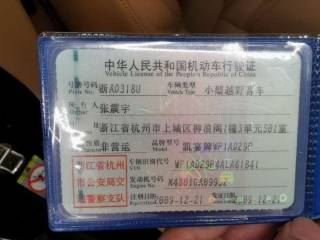 中华人民共和国机动车行驶证
Vehicle License of the People's Republic of China
号牌号码 浙A0318U 车辆类型 小型越野客车
Plate No. Vehicle Type
所有人 张震宇
Owner
住址 浙江省杭州市上城区柳浪阁1幢3单元501室
Address
使用性质 非营运 品牌型号 凯宴牌WP1AD29P
浙江省杭州 车辆识别代号 WP1AD29P4ALA61841
VIN
市公安局交 发动机号码
Engine No.
通警察支队 注册日期 2009-12-21 发证日期 2009-12-21